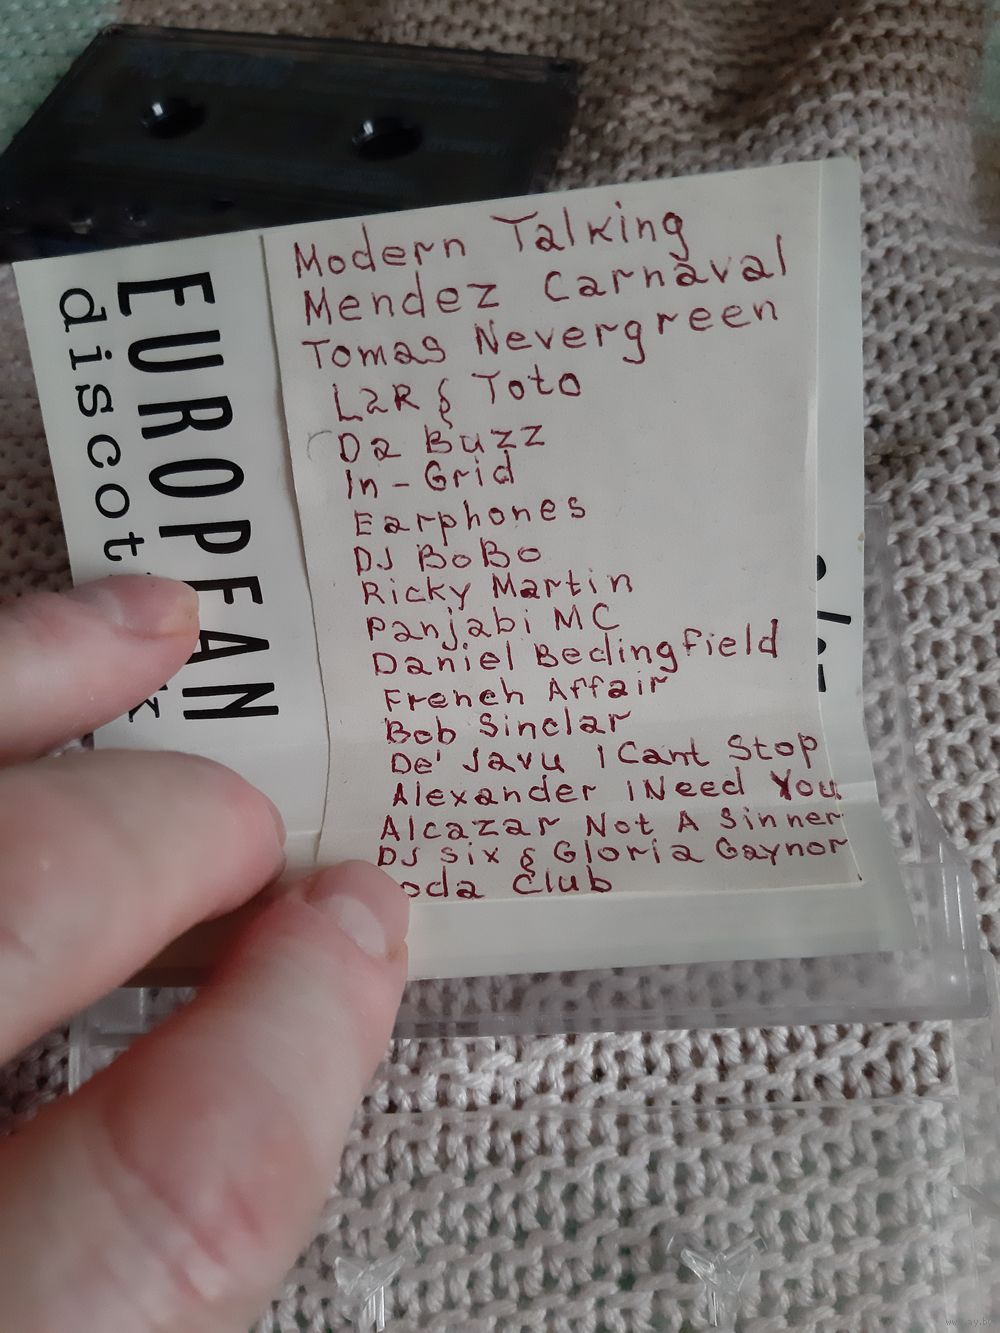 EUROPEAN
Modern Talking
Mendez Carnaval
Tomas Nevergreen
L2R & Toto
Da Buzz
In-Grid
Earphones
DJ BoBo
Ricky Martin
Panjabi MC
Daniel Bedingfield
French Affair
Bob Sinclar
De' Javu I Cant Stop
Alexander I Need You
Alcazar Not A Sinner
DJ Six & Gloria Gaynor
Club